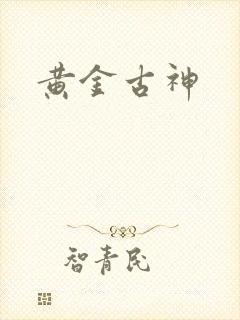 黄金古神
智青民